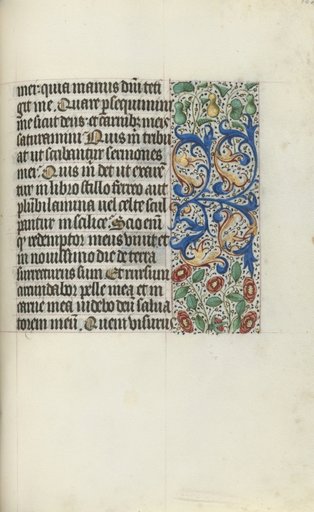 mei: quia manus dñi teti
git me. Quare p̃sequimini
me sicut deus: et carnib; meis
saturamini. Quis m̃ tribu
at ut scribantur sermones
mei. Quis m̃ det ut exaren
tur in libro stillo ferreo aut
plũbi lamina uel celte scul
pantur in scilice. Scio em̃
q̃ redemptor meus viuit et
in nouissimo die de terra
surrecturus sum. Et rursum
circundabor pelle mea et in
carne mea uidebo deũ salua
torem meũ. Quem visurus